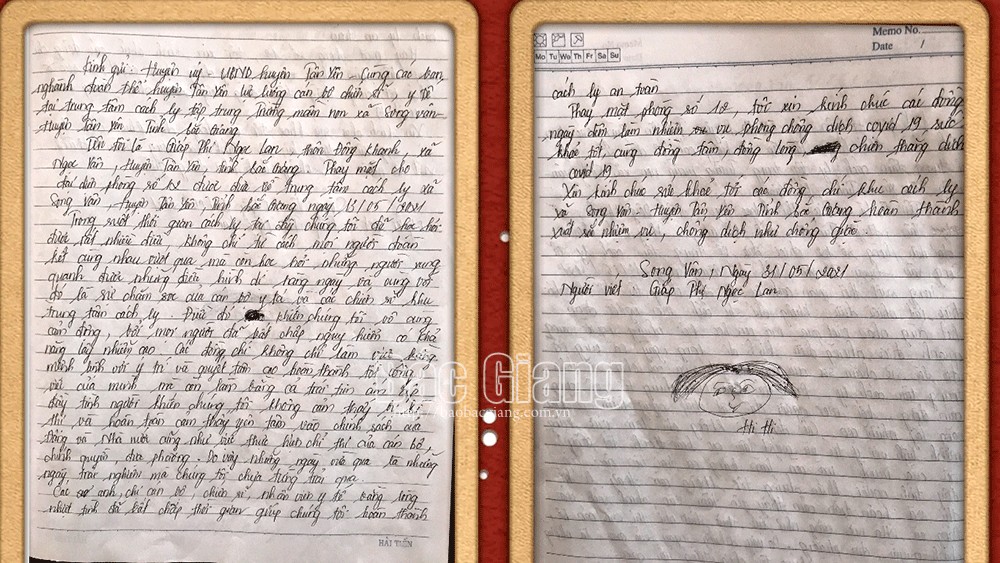 Kính gửi: Huyện ủy, UBND huyện Tân Yên. Cùng các ban
nghành đoàn thể huyện Tân Yên. Lực lượng cán bộ chiến sĩ - y tế
tại trung tâm cách ly tập trung Trường mầm non xã Song Vân-
Huyện Tân Yên Tỉnh Bắc Giang
Tên tôi là: Giáp Phị Ngọc Lan, thôn Đồng Khanh, xã
Ngọc Vân, Huyện Tân Yên, tỉnh Bắc Giang. Thay mặt cho
đại diện phòng số 12 được đưa về trung tâm cách ly xã
Song Vân, Huyện Tân Yên. Tỉnh Bắc Giang ngày 13/05/2021
Trong suốt thời gian cách ly tại đây chúng tôi đã học hỏi
được rất nhiều điều, không chỉ tư cách mọi người đoàn
kết cùng nhau vượt qua mà còn học hỏi những người xung
quanh được những điều bình dị hằng ngày và cùng với
đó là sự chăm sóc của cán bộ y tá và các chiến sĩ khu
trung tâm cách ly. Điều đó khiến chúng tôi vô cùng
cảm động, bởi mọi người đã bất chấp nguy hiểm có khả
năng lây nhiễm cao. Các đồng chí không chỉ làm việc bằng
mệnh lệnh với ý trí và quyết tâm cao hoàn thành tốt công
vụ của mình mà còn làm bằng cả trái tim ấm áp
đầy tình người khiến chúng tôi không cảm thấy bị kì
thị và hoàn toàn cảm thấy yên tâm vào chính sách của
Đảng và Nhà nước cũng như việc thực hiện chỉ thị của cán bộ,
chính quyền, địa phương. Do vậy những ngày vừa qua là những
ngày trải nghiệm mà chúng tôi chưa từng trải qua.
Các anh, chị cán bộ, chiến sĩ, nhân viên y tế bằng lòng
nhiệt tình đã bất chấp thời gian giúp chúng tôi hoàn thành
HẢI TIẾN
Memo No.
Date /
Mo Tu We Th Fr Sa Su
cách ly an toàn
Thay mặt phòng số 12, tôi xin kính chúc các đồng
ngày đêm làm nhiệm vụ phòng chống dịch covid 19 sức
khỏe tốt, cùng đồng tâm, đồng lòng chiến thắng dịch
covid 19
Xin kính chúc sức khoẻ tới các đồng chí khu cách ly
xã Song Vân. Huyện Tân Yên Tỉnh Bắc Giang hoàn thành
xuất sắc nhiệm vụ, chống dịch như chống giặc
Song Vân, Ngày 31/05/2021
Người viết: Giáp Phị Ngọc Lan
Hi Hi
Bắc Giang
baobacgiang.com.vn